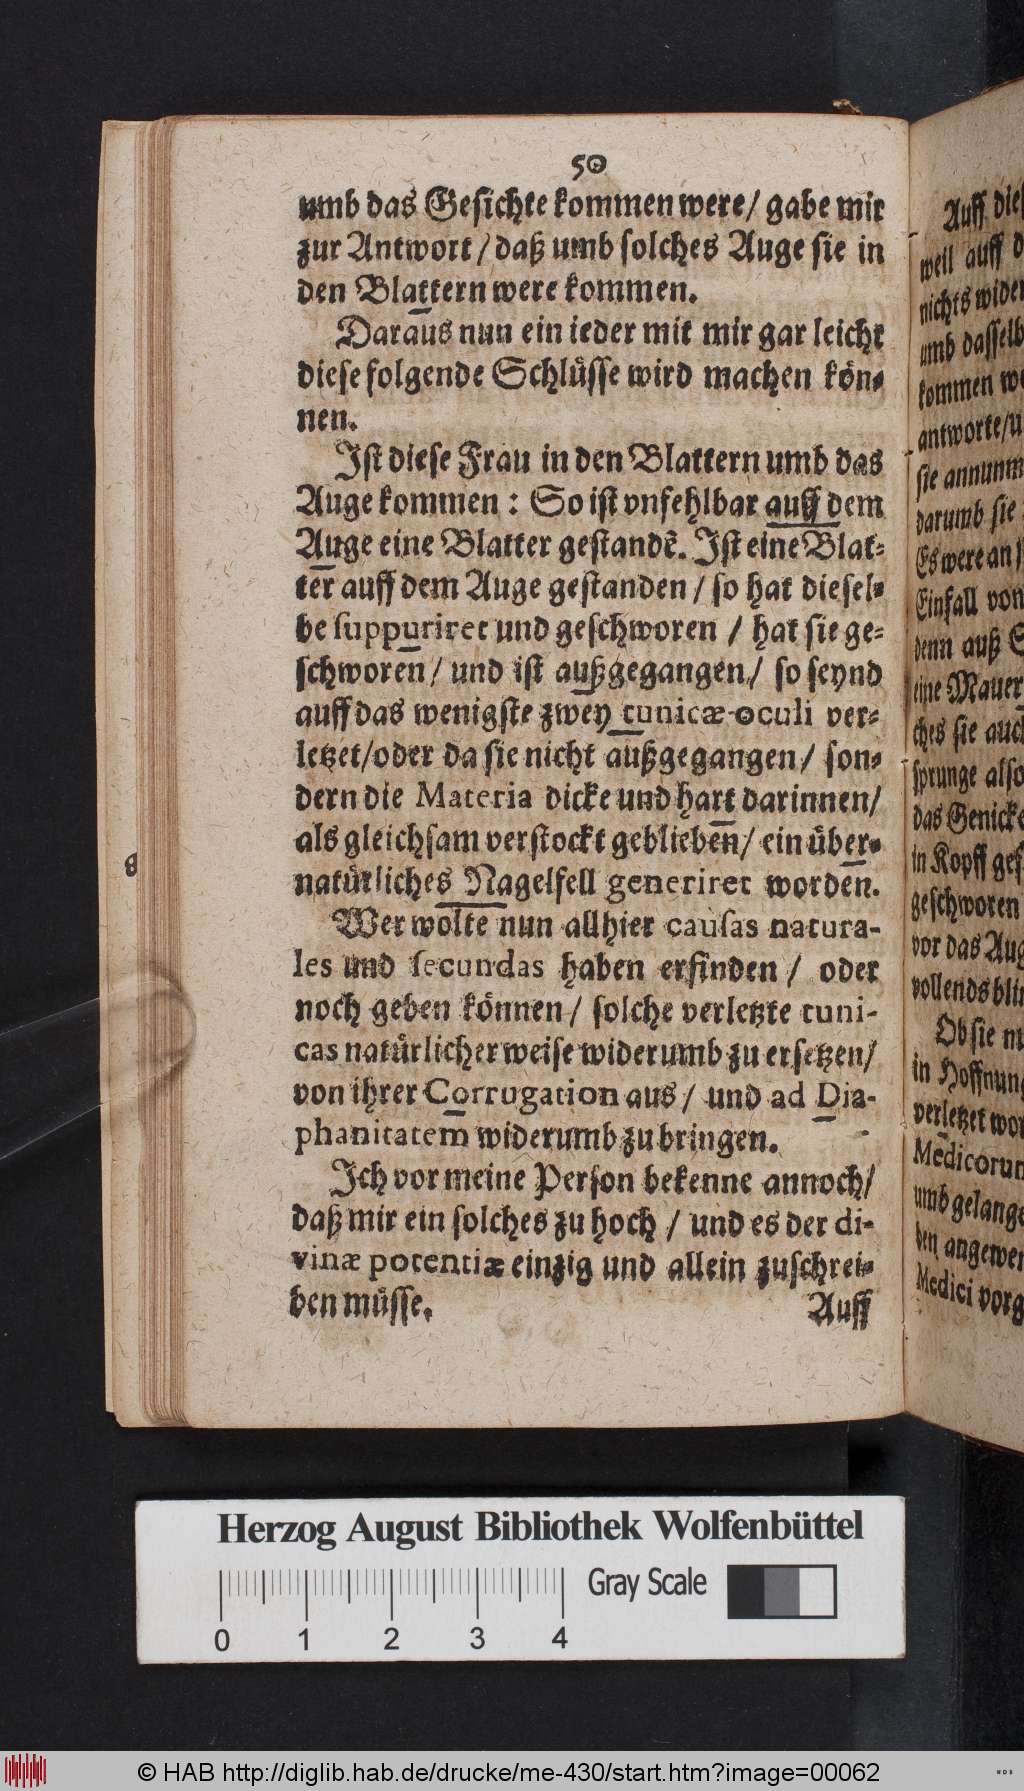 50
umb das Gesichte kommen were/ gabe mir
zur Antwort/ daß umb solches Auge sie in
den Blattern were kommen.
Daraus nun ein ieder mit mir gar leicht
diese folgende Schlüsse wird machen kön-
nen.
Ist diese Frau in den Blattern umb das
Auge kommen: So ist vnfehlbar auff dem
Auge eine Blatter gestandẽ. Ist eine Blat-
ter auff dem Auge gestanden/ so hat diesel-
be suppuriret und geschworen/ hat sie ge-
schworen/ und ist außgegangen/ so seynd
auff das wenigste zwey tunicæ oculi ver-
letzet/oder da sie nicht außgegangen/ son-
dern die Materia dicke und hart darinnen/
als gleichsam verstockt geblieben/ ein über-
natürliches Nagelfell generiret worden.
Wer wolte nun allhier causas natura-
les und secundas haben erfinden/ oder
noch geben können/ solche verletzte tuni-
cas natürlicher weise widerumb zu ersetzen/
von ihrer Corrugation aus/ und ad Dia-
phanitatem widerumb zu bringen.
Ich vor meine Person bekenne annoch/
daß mir ein solches zu hoch/ und es der di-
vinæ potentiæ einzig und allein zuschrei-
ben müsse.
Auff
Auff
weil auff
nichts
umb
kommen
antworte/
sie
darumb sie
Es were an
Einfall von
denn auß
eine Mauer
ches sie
sprunge also
das Genicke
in Kopff
geschworen
vor das
vollends
Ob sie
in
verletzet
umb
Medici
Herzog August Bibliothek Wolfenbüttel
Gray Scale
0 1 2 3 4
© HAB http://diglib.hab.de/drucke/me-430/start.htm?image=00062